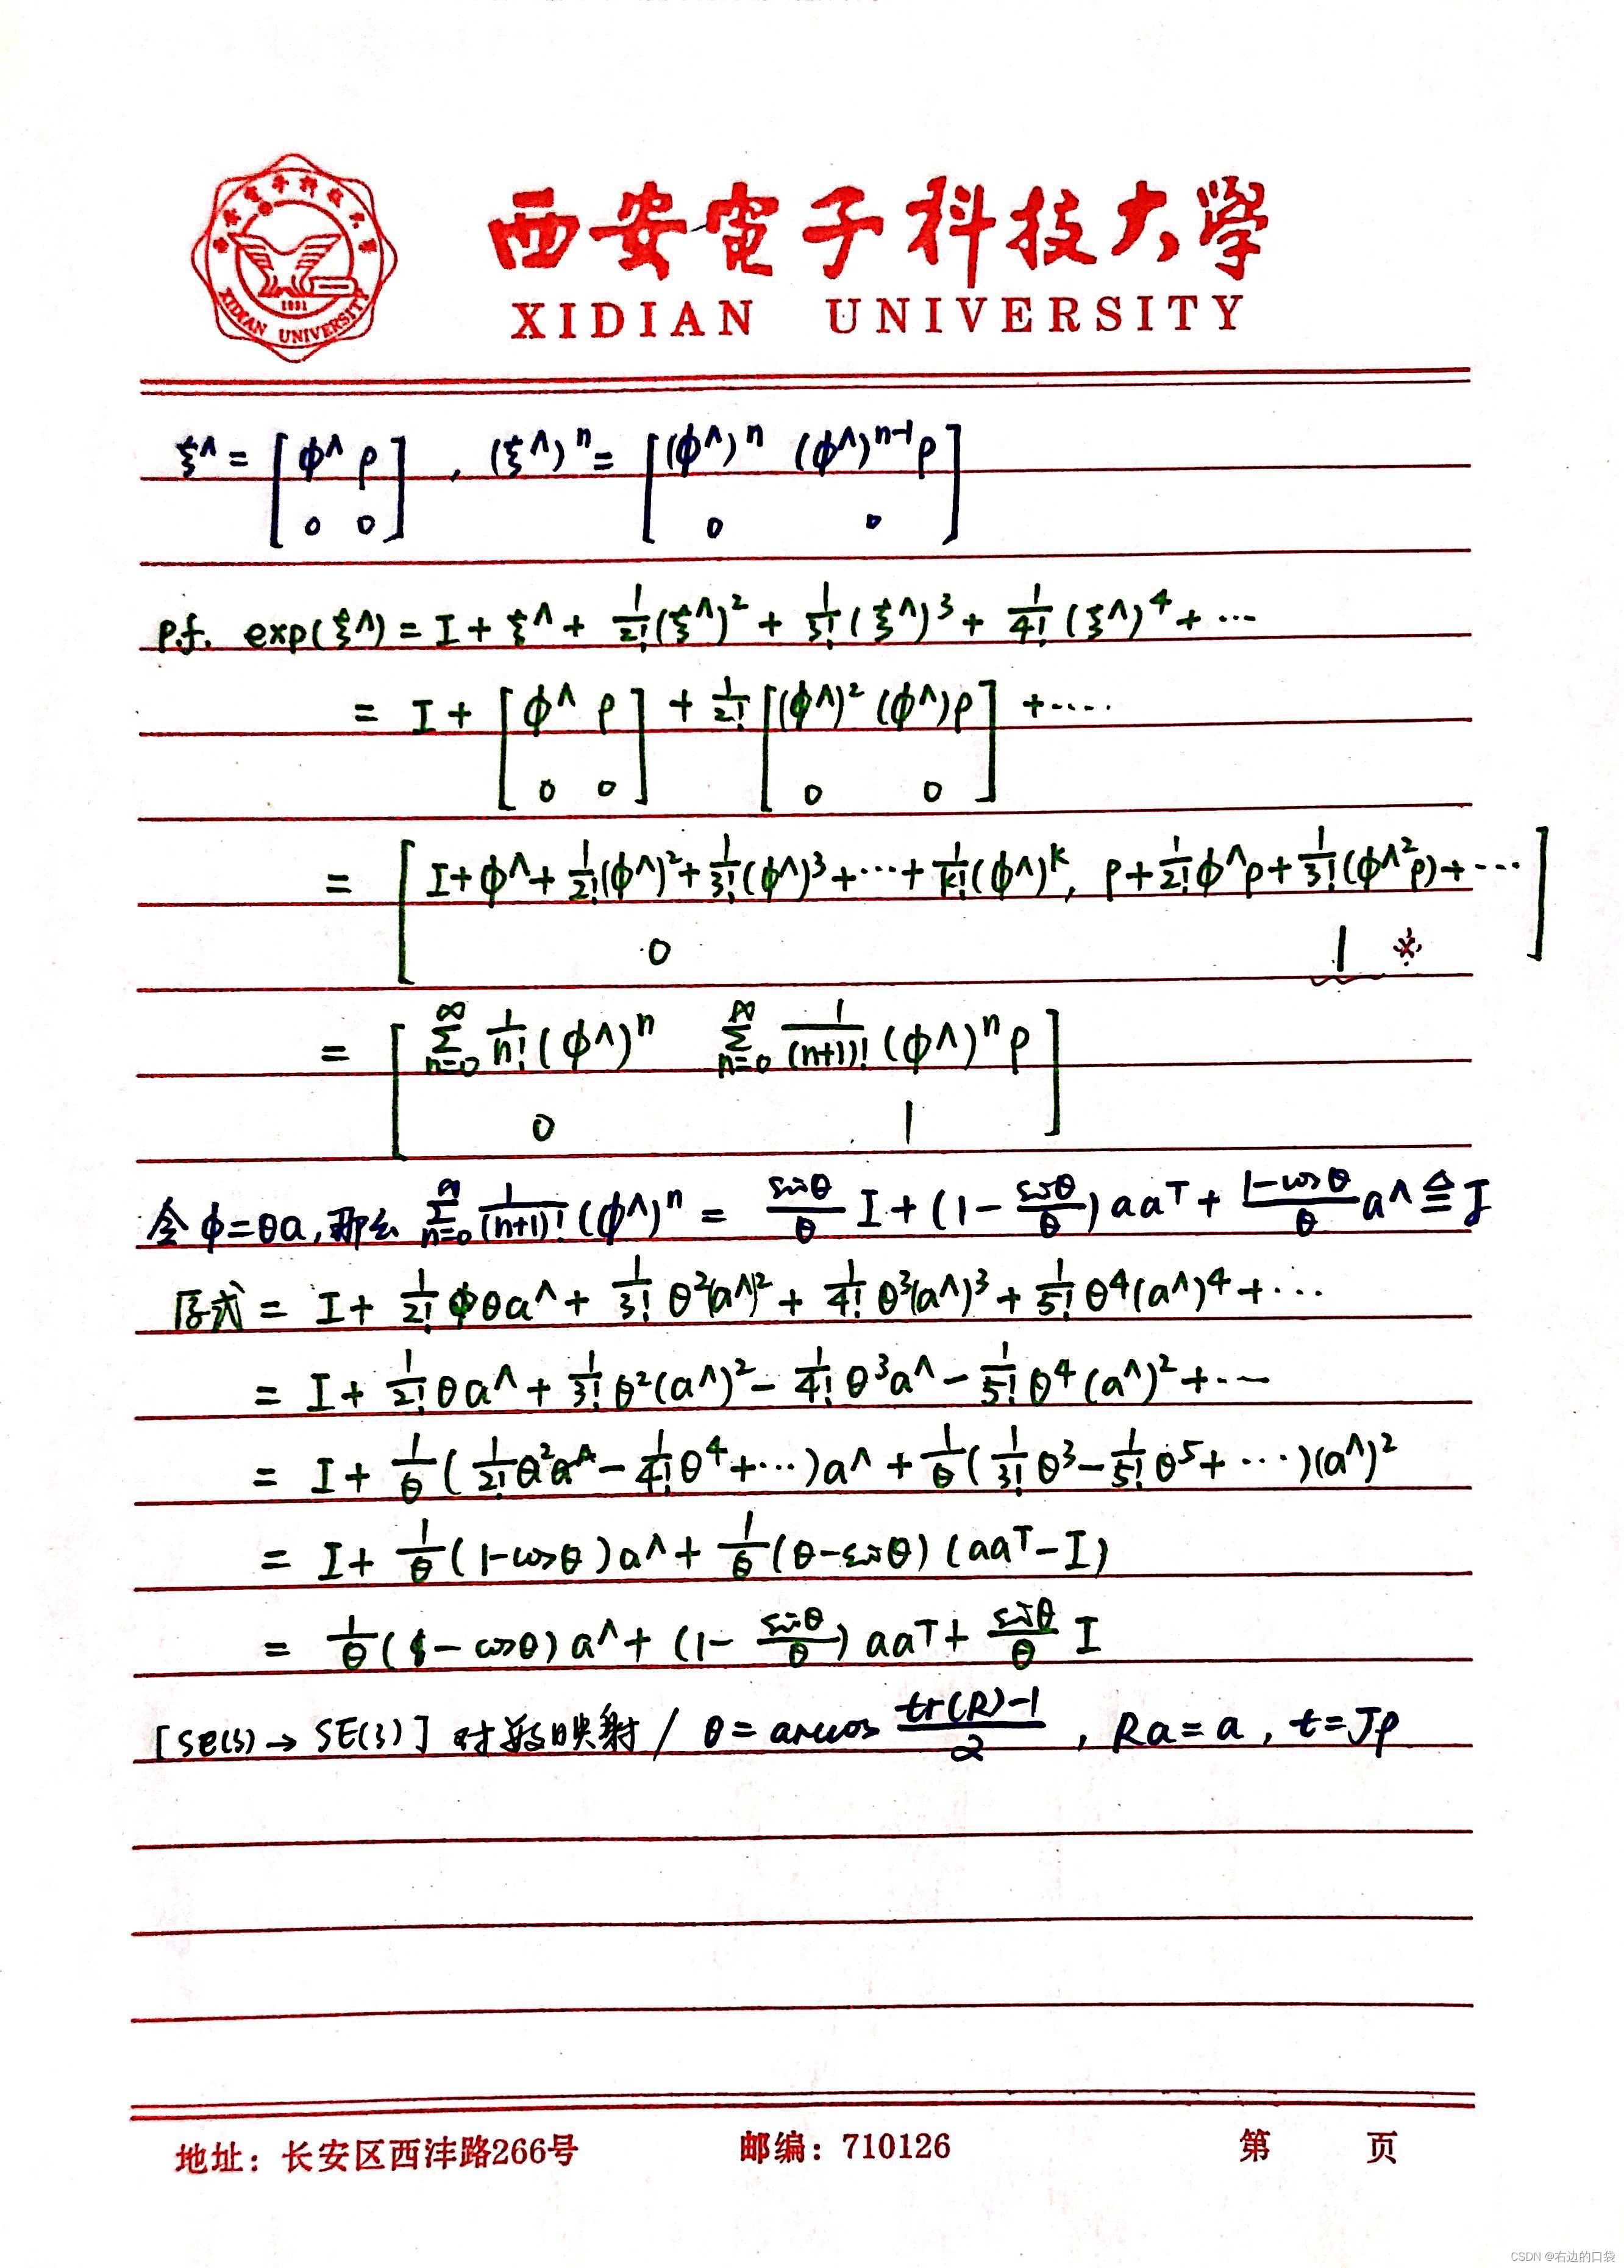 西安電子科技大學
XIDIAN UNIVERSITY
1931
XIDIAN UNIVERSITY
ξ^ = [ϕ^ ρ; 0 0], (ξ^)ⁿ = [(ϕ^)ⁿ (ϕ^)ⁿ⁻¹ρ; 0 0]
pf. exp(ξ^) = I + ξ^ + 1/2!(ξ^)² + 1/3!(ξ^)³ + 1/4!(ξ^)⁴ + ···
= I + [ϕ^ ρ; 0 0] + 1/2! [(ϕ^)² (ϕ^)ρ; 0 0] + ····
= [I + ϕ^ + 1/2!(ϕ^)² + 1/3!(ϕ^)³ + ··· + 1/k!(ϕ^)ᵏ, ρ + 1/2!ϕ^ρ + 1/3!(ϕ^²ρ) + ···; 0 1 ※]
= [∑ₙ₌₀^∞ 1/n!(ϕ^)ⁿ ∑ₙ₌₀^∞ 1/(n+1)!(ϕ^)ⁿρ; 0 1]
令 ϕ=θa, 那么 ∑ₙ₌₀^∞ 1/(n+1)!(ϕ^)ⁿ = sinθ/θ I + (1 - sinθ/θ) aaᵀ + 1-cosθ/θ a^ ≜ J
原式 = I + 1/2! θa^ + 1/3! θ²(a^)² + 1/4! θ³(a^)³ + 1/5! θ⁴(a^)⁴ + ···
= I + 1/2! θa^ + 1/3! θ²(a^)² - 1/4! θ³a^ - 1/5! θ⁴(a^)² + ···
= I + 1/θ(1/2! θ² - 1/4! θ⁴ + ···)a^ + 1/θ(1/3! θ³ - 1/5! θ⁵ + ···)(a^)²
= I + 1/θ(1-cosθ)a^ + 1/θ(θ-sinθ)(aaᵀ-I)
= 1/θ(1-cosθ)a^ + (1 - sinθ/θ) aaᵀ + sinθ/θ I
[se(3) → SE(3)] 对数映射 / θ = arccos tr(R)-1/2, Ra=a, t=Jρ
地址：长安区西沣路266号 邮编：710126 第 页
CSDN @右边的口袋